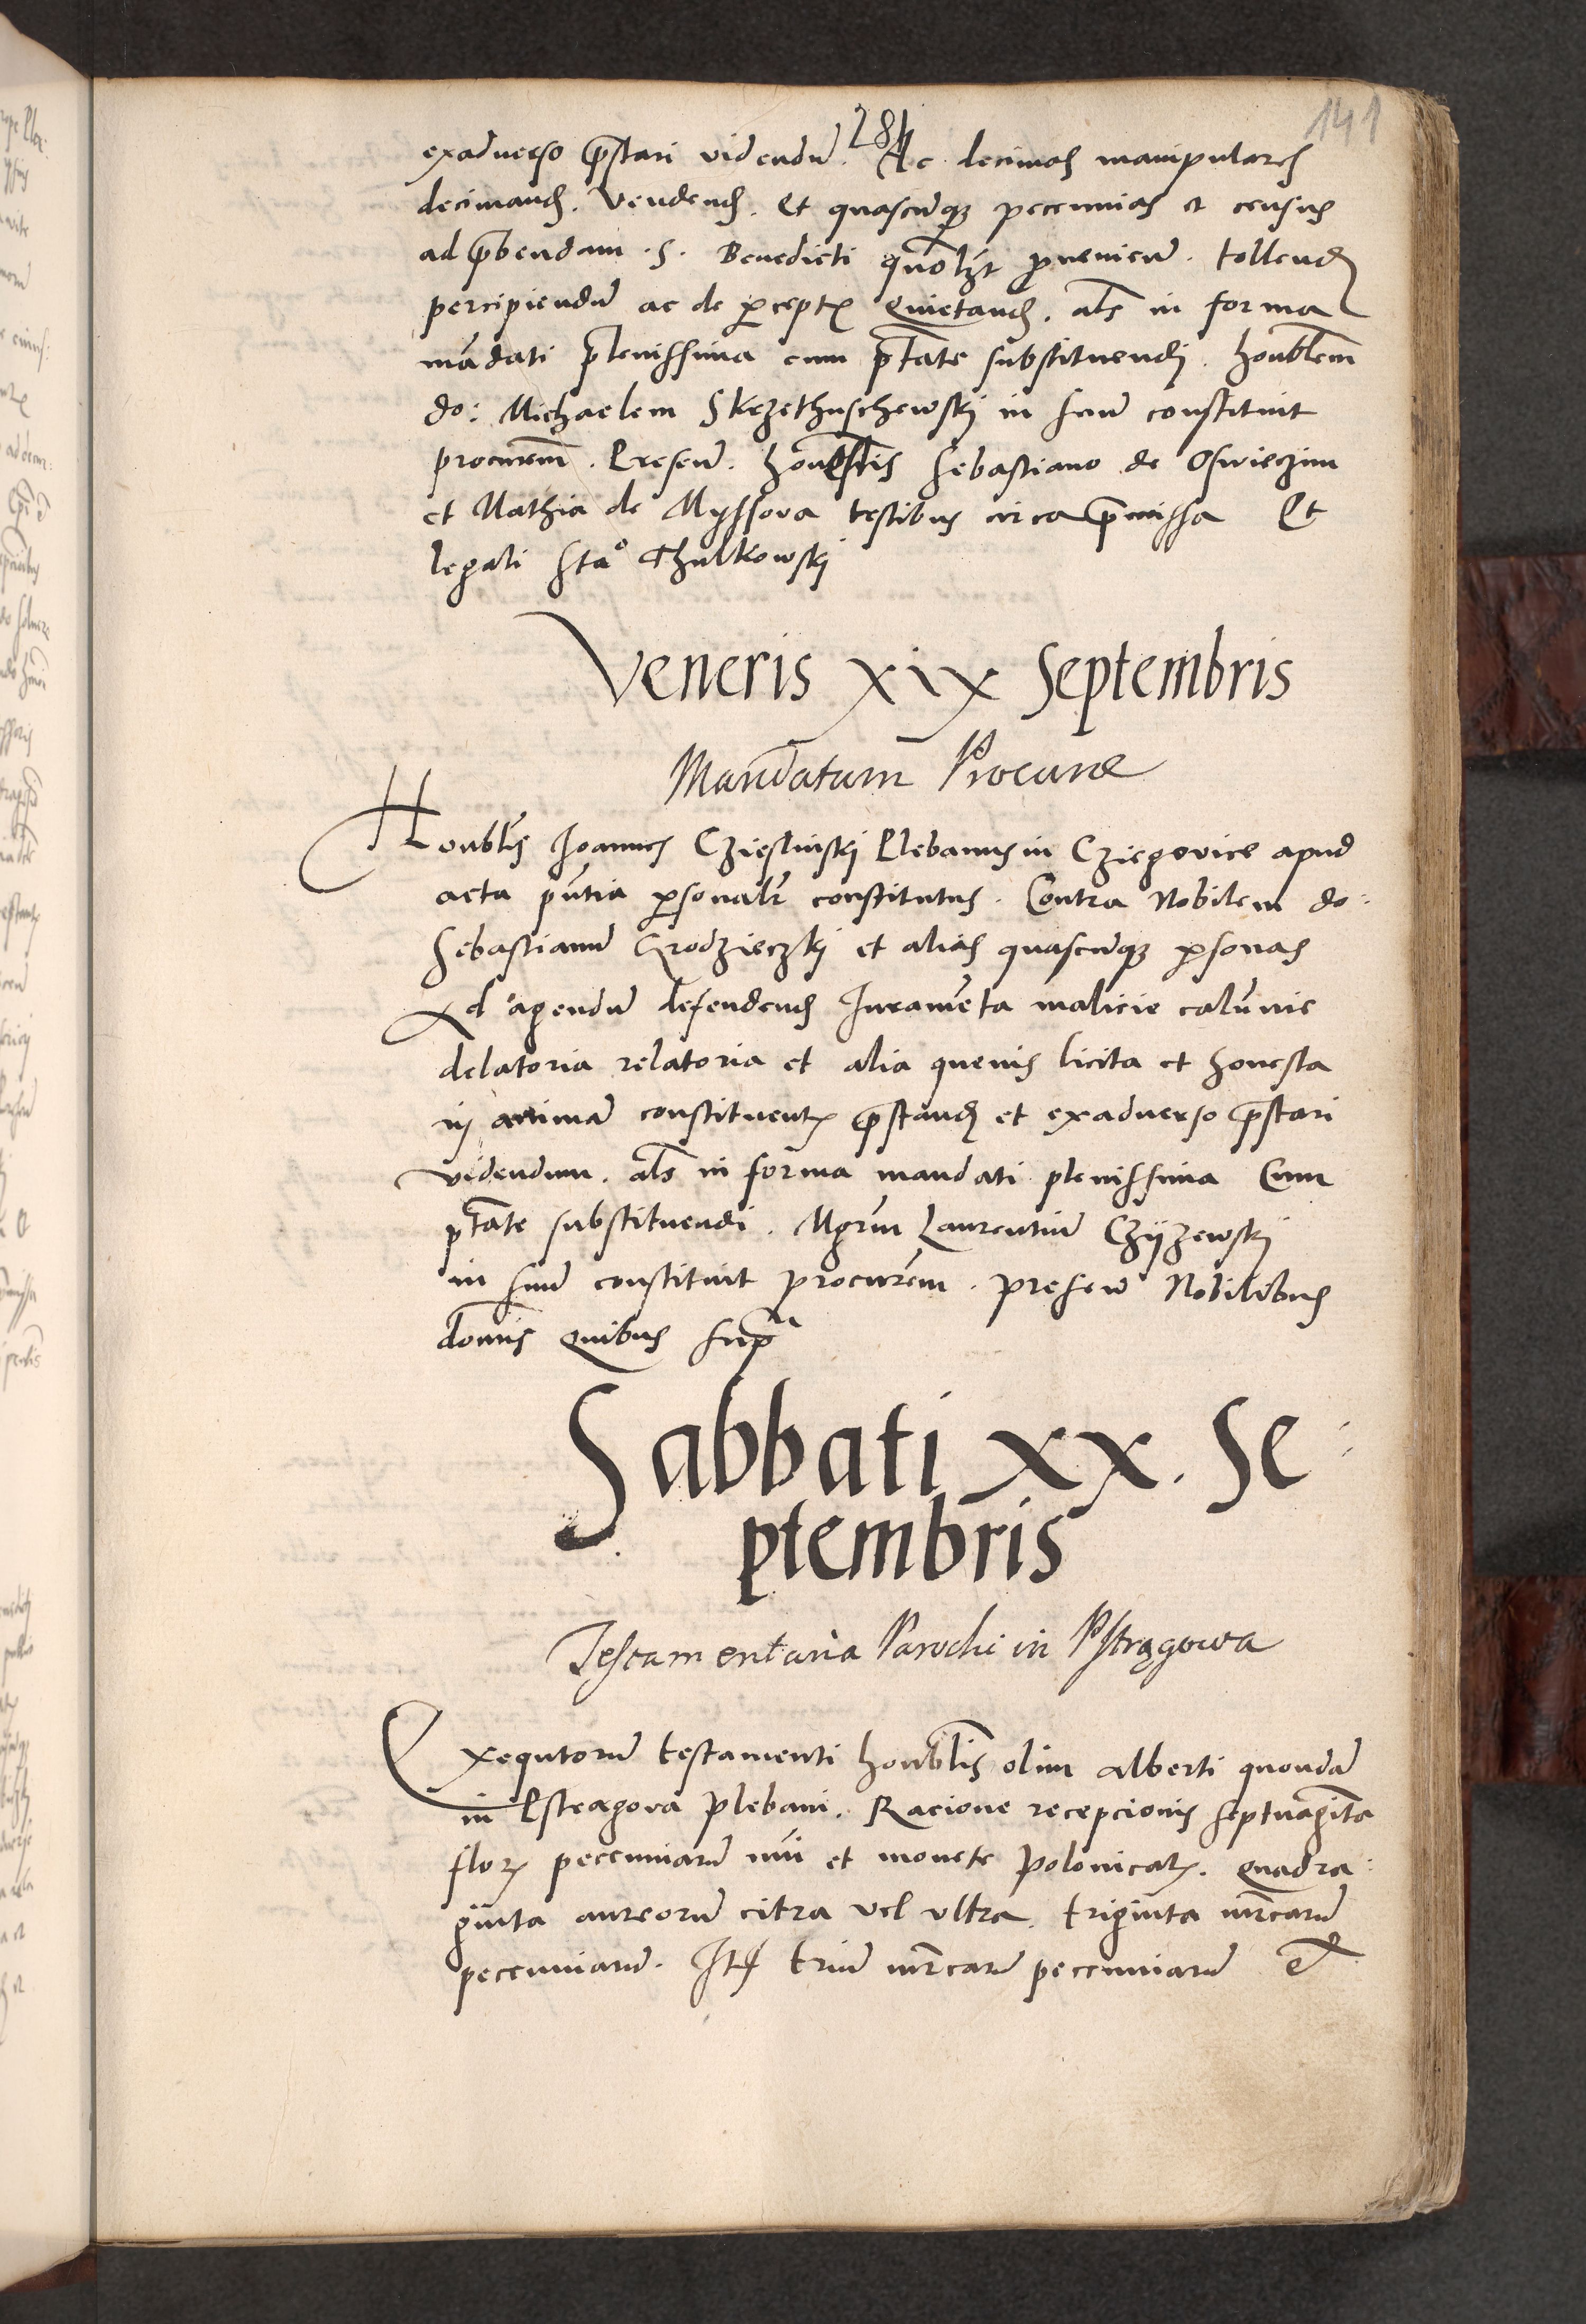 284
141
exadverso p̄stari videndū. Ac decimas manipulares
decimand. Vendend. Et quascūq; peccunias et census
ad p̄bendam .S. Benedicti quōlȝt provenieū. tollend
percipiendū ac de p̱cept Quietand. als in forma
mādati plenissima cum ptāte substituendi. honblem
do: Michaelem Skrzethuschewskj in suū constituit
procurem̄. Preseū. honestis Sebastiano de Oswieczim
et Mathia de Myssova testibus circa p̄missa Et
legali Staº Thulkowskj
Veneris xix Septembris
Mandatum Procurae
Honblis Joannes Czieslinskj Plebanus in Cziegovice apud
acta pn̄tia p̱sonalr constitutus. Contra Nobilem do:
Sebastianū Grodzieczkj et alias quascūq; p̱sonas
Ad agendū defendend Juramēta malicie calūnie
delatoria relatoria et alia quevis licita et honesta
in animā constituent p̄stand et exadverso p̄stari
videndum. als in forma mandati plenissima Cum
ptāte substituendi. Mgrm̄ Laurentiū Czyżewskj
in suū constituit procurēm. preseū Nobilibus
domīs Quibus supᵃ
Sabbati xx. Se:
ptembris
Testamentaria Parochi in Pstrągowa
Exequtorū testamenti honblis olim Alberti quondā
in Pstragova plebani. Racione recepcionis septuagīta
flor peccuniarū nūi et monete polonical. Quadra:
ginta aureorū citra vel ultra. triginta mr̄carū
peccuniarū. It triū mr̄carū peccuniarū et